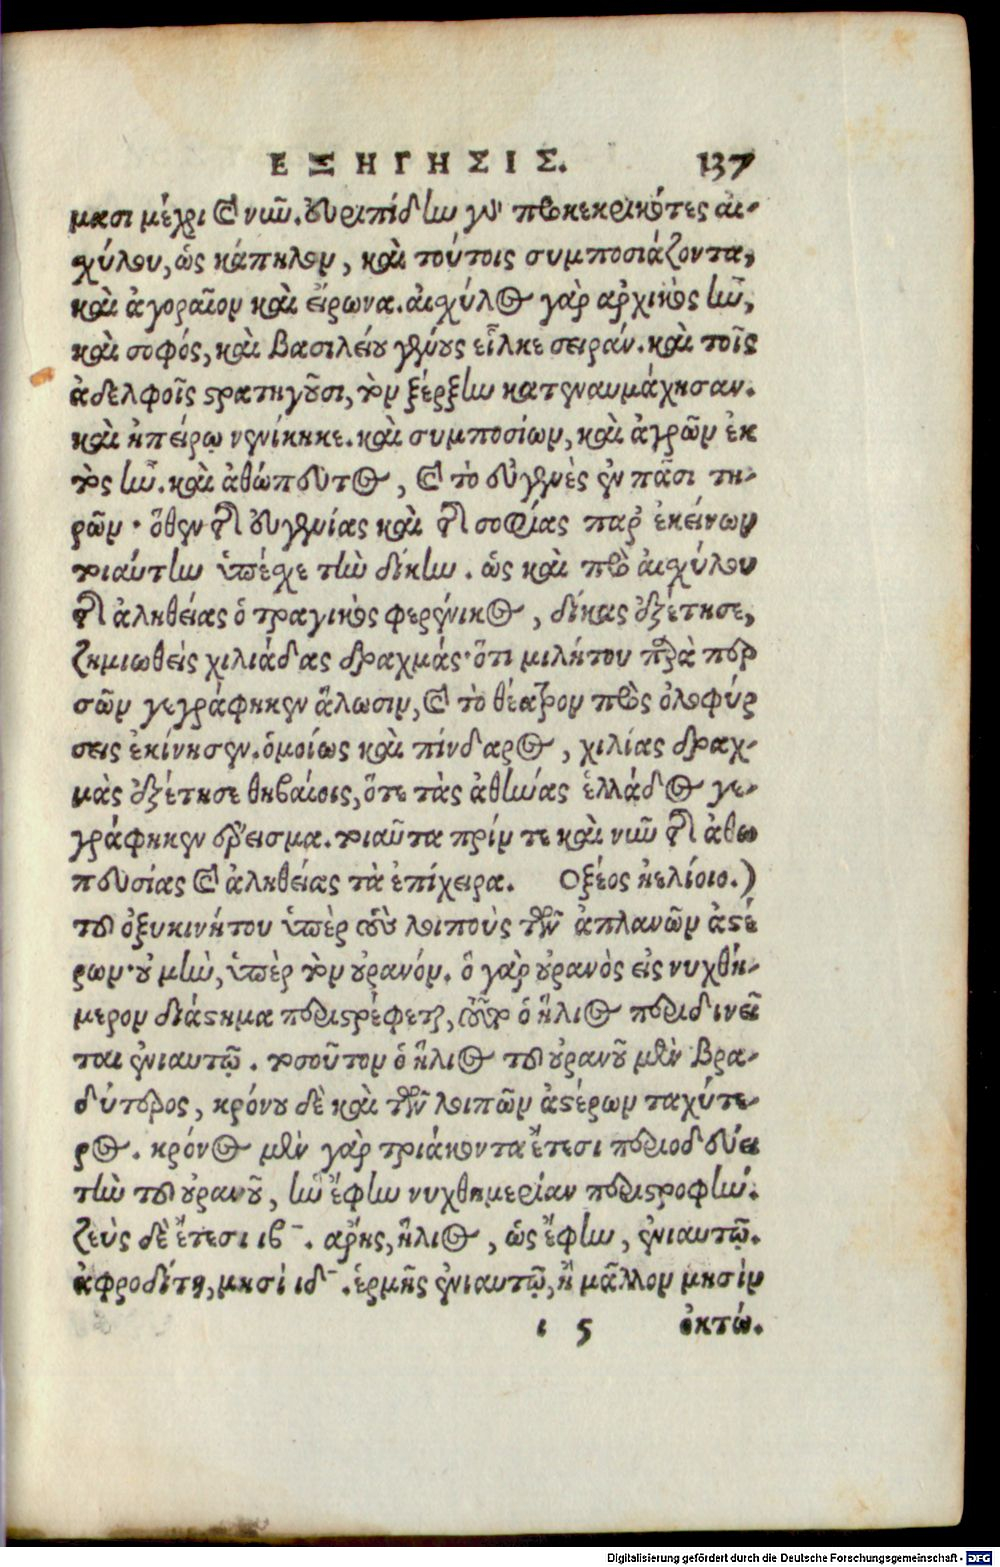 ΕΞΗΓΗΣΙΣ. 137
μασι μέχρι καὶ νῦν. Εὐριπίδην γοῦν προκεκρικότες αἰ-
χύλου, ὡς κάπηλον, καὶ τούτοις συμποσιάζοντα,
καὶ ἀγοραῖον καὶ εἴρωνα. αἰχύλος γὰρ ἀρχικὸς ἦν,
καὶ σοφός, καὶ βασιλείου γένους εἷλκε σειράν. καὶ τοῖς
ἀδελφοῖς στρατηγοῦσι, τὸν ξέρξην κατεναυμάχησαν.
καὶ ἠπείρῳ νενίκηκε. καὶ συμποσίων, καὶ ἀγρῶν ἐκ
τὸς ἦν. καὶ ἀθώπευτος, καὶ τὸ εὐγενὲς ἐν πᾶσι τη-
ρῶν · ὅθεν τῆς εὐγενίας καὶ τῆς σοφίας παρ ἐκείνων
τοιαύτην ὑπέχε τὴν δίκην. ὡς καὶ πρὸ αἰχύλου
τῆς ἀληθείας ὁ τραγικὸς φερένικος, δίκας ἐξέτησε,
ζημιωθεὶς χιλιάδας δραχμάς· ὅτι μιλήτου παρὰ περ
σῶν γεγράφηκεν ἅλωσιν, καὶ τὸ θέατρον πρὸς ὀλοφύρ
σεις ἐκίνησεν. ὁμοίως καὶ πίνδαρος, χιλίας δραχ-
μὰς ἐξέτησε θηβαίοις, ὅτε τὰς ἀθήνας ἑλλάδος γε-
γράφηκεν ἔρεισμα. τοιαῦτα πρίν τε καὶ νῦν τῆς ἀθω
πευσίας καὶ ἀληθείας τὰ ἐπίχειρα. Οξέος ἠελίοιο.)
τοῦ ὀξυκινήτου ὑπὲρ τοὺς λοιποὺς τῶν ἀπλανῶν ἀστέ
ρων· οὐ μὴν, ὑπὲρ τὸν οὐρανόν. ὁ γὰρ οὐρανὸς εἰς νυχθή-
μερον διάστημα περιστρέφεται, ὅπερ ὁ ἥλιος περιδινεῖ
ται ἐνιαυτῷ. τοσοῦτον ὁ ἥλιος τοῦ οὐρανοῦ μὲν βρα-
δύτερος, κρόνου δὲ καὶ τῶν λοιπῶν ἀστέρων ταχύτε-
ρος. κρόνος μὲν γὰρ τριάκοντα ἔτεσι περιοδεύει
τὴν τοῦ οὐρανοῦ, ἣν ἔφην νυχθημερίαν περιστροφήν.
ζεὺς δὲ ἔτεσι ιβ¯. ἄρης, ἥλιος, ὡς ἔφην, ἐνιαυτῷ.
ἀφροδίτη, μησὶ ιδ¯. ἑρμῆς ἐνιαυτῷ, ἢ μᾶλλον μησὶν
ι 5 ὀκτώ.
Digitalisierung gefördert durch die Deutsche Forschungsgemeinschaft - DFG